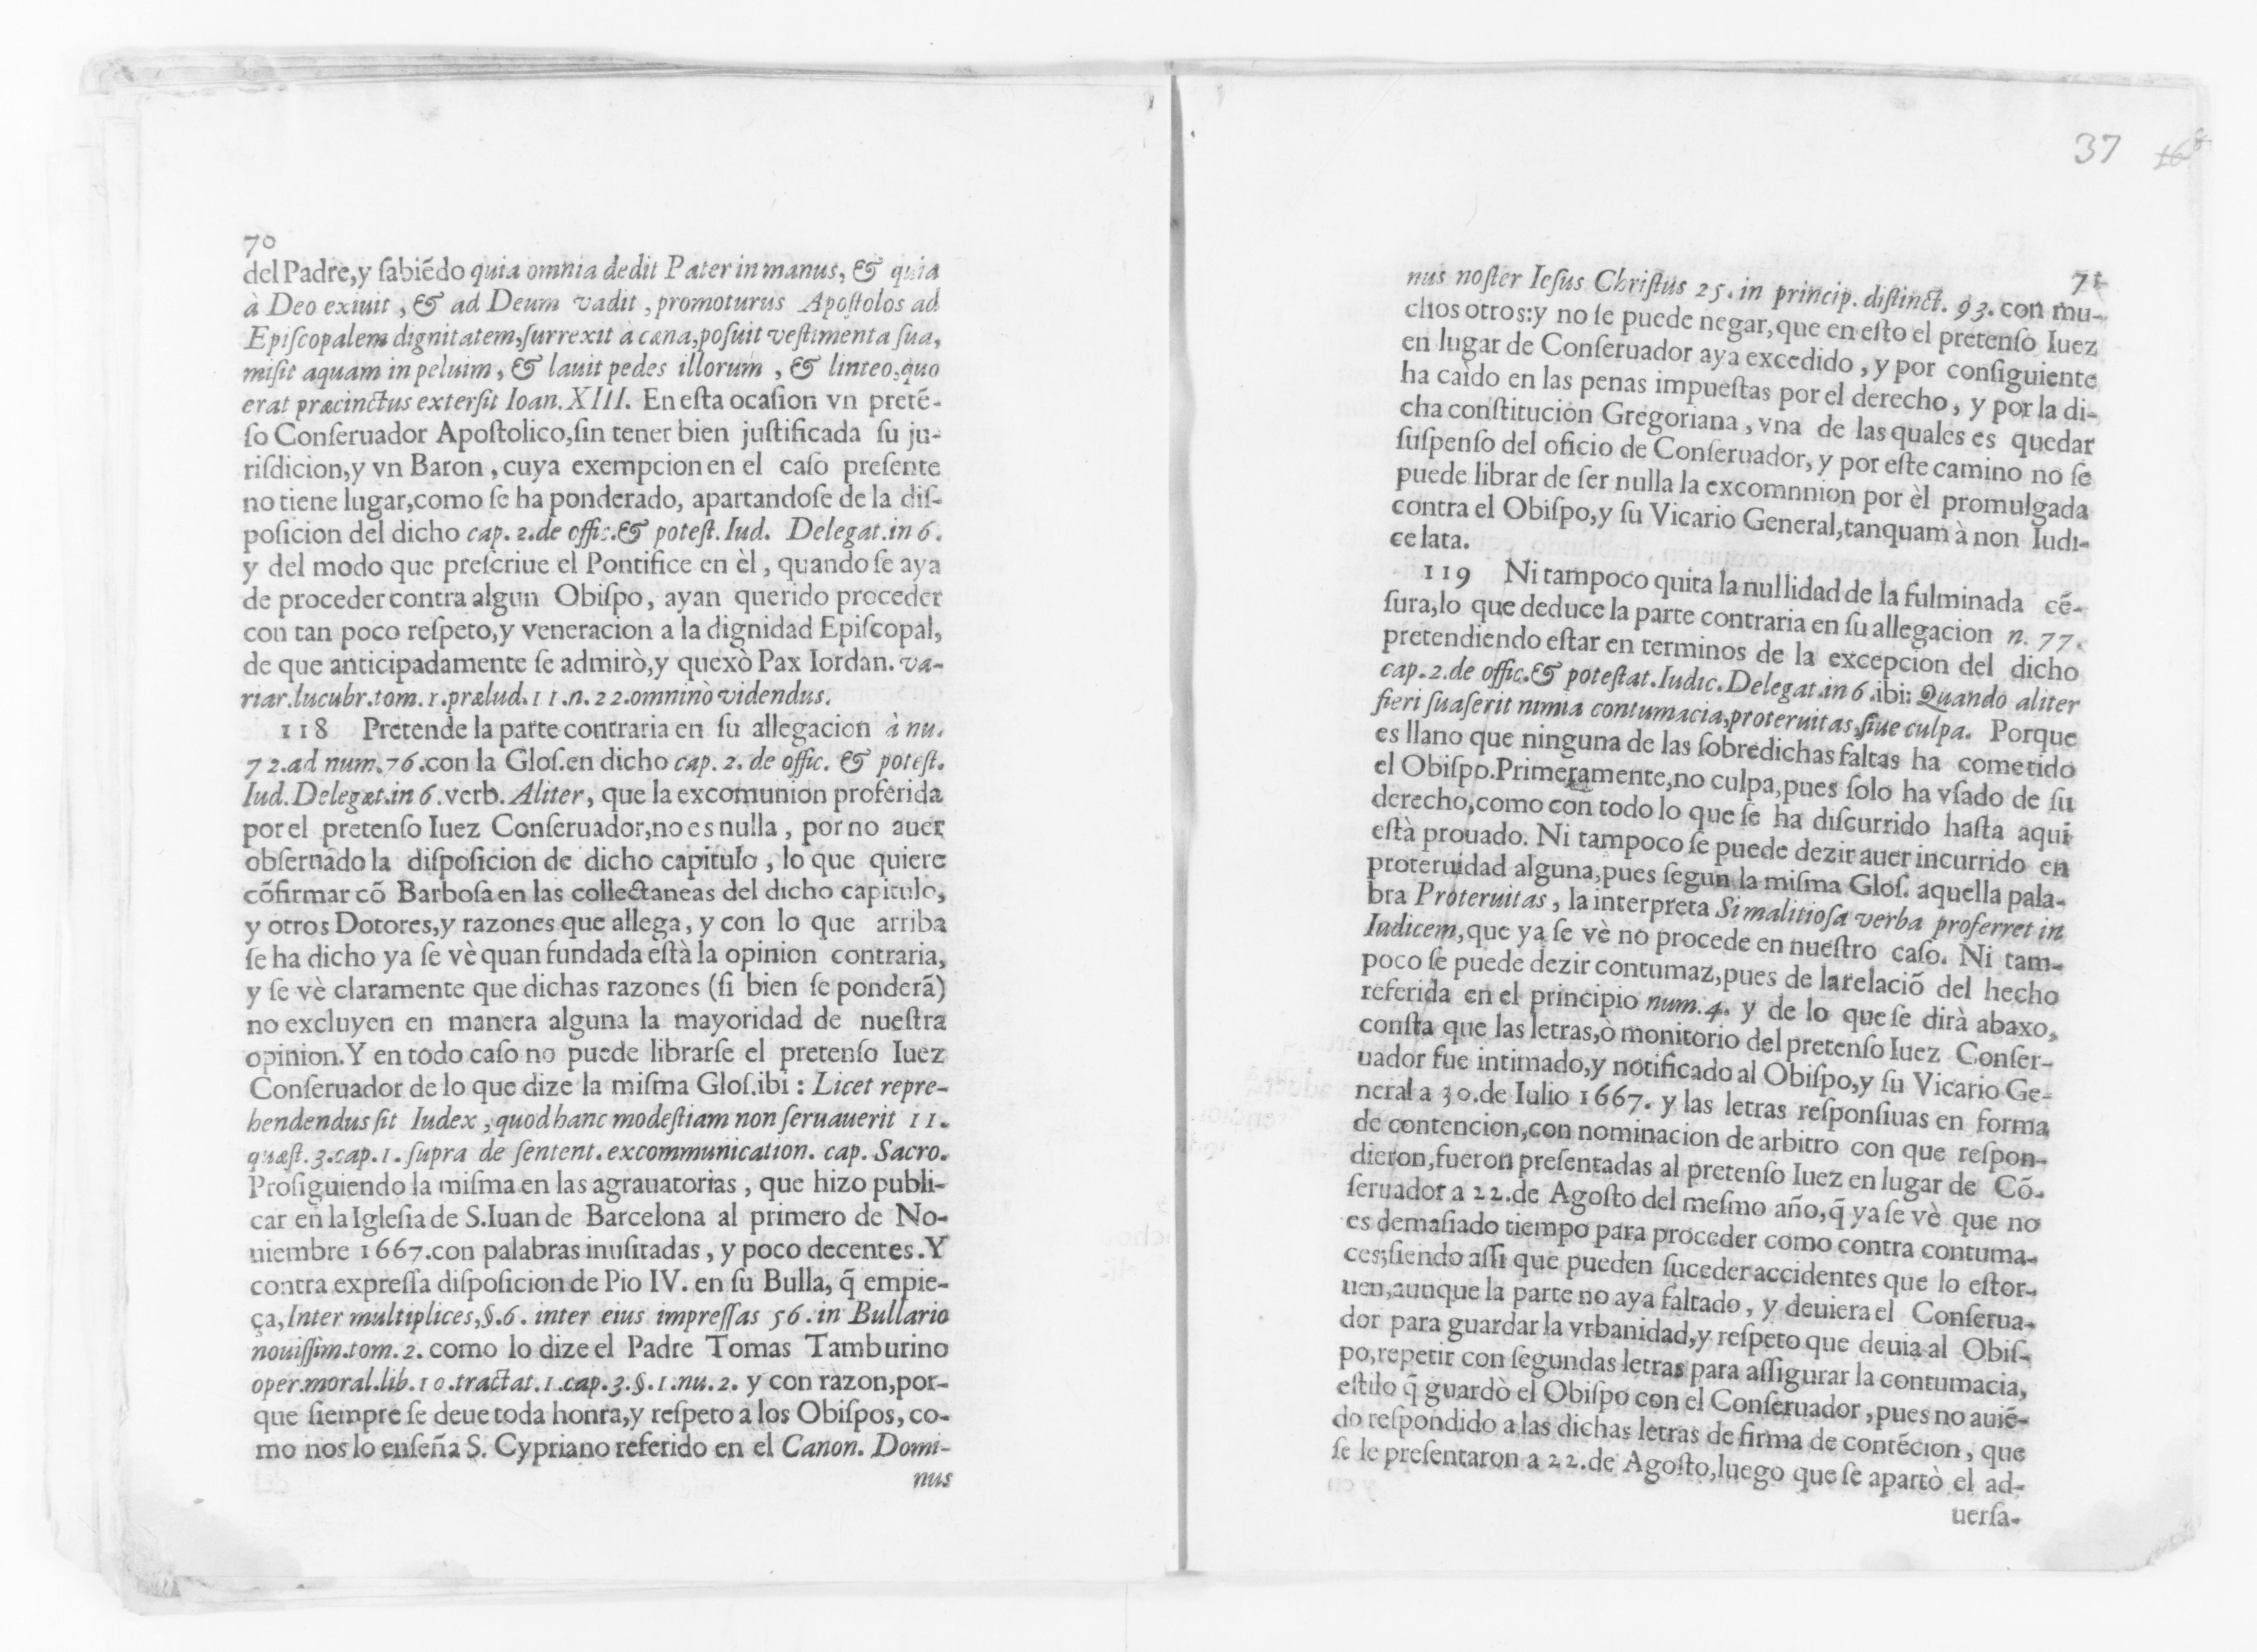 70
del Padre,y ſabiẽdo quia omnia dedit Pater in manus, & quia
à Deo exiuit, & ad Deum vadit, promoturus Apoſtolos ad
Epiſcopalem dignitatem,ſurrexit à cæna,poſuit veſtimenta ſua,
miſit aquam in peluim, & lauit pedes illorum, & linteo,quo
erat præcinctus exterſit Ioan.XIII. En eſta ocaſion vn pretẽ-
ſo Conſeruador Apoſtolico,ſin tener bien juſtificada ſu ju-
riſdicion,y vn Baron, cuya exempcion en el caſo preſente
no tiene lugar,como ſe ha ponderado, apartandoſe de la diſ-
poſicion del dicho cap. 2.de offic.& poteſt.Iud. Delegat.in 6.
y del modo que preſcriue el Pontifice en èl, quando ſe aya
de proceder contra algun Obiſpo, ayan querido proceder
con tan poco reſpeto,y veneracion a la dignidad Epiſcopal,
de que anticipadamente ſe admirò,y quexò Pax Iordan. va-
riar.lucubr.tom.1.prælud.11.n.22.omninò videndus.
118 Pretende la parte contraria en ſu allegacion à nu.
72.ad num.76.con la Gloſ.en dicho cap. 2. de offic. & poteſt.
Iud.Delegat.in 6.verb. Aliter, que la excomunion proferida
por el pretenſo Iuez Conſeruador,no es nulla, por no auer
obſeruado la diſpoſicion de dicho capitulo, lo que quiere
cõfirmar cõ Barboſa en las collectaneas del dicho capitulo,
y otros Dotores,y razones que allega, y con lo que arriba
ſe ha dicho ya ſe vè quan fundada eſtà la opinion contraria,
y ſe vè claramente que dichas razones (ſi bien ſe ponderã)
no excluyen en manera alguna la mayoridad de nueſtra
opinion.Y en todo caſo no puede librarſe el pretenſo Iuez
Conſeruador de lo que dize la miſma Gloſ.ibi: Licet repre-
hendendus ſit Iudex, quod hanc modeſtiam non ſeruauerit 11.
quæſt.3.cap.1.ſupra de ſentent.excommunication. cap. Sacro.
Proſiguiendo la miſma en las agrauatorias, que hizo publi-
car en la Igleſia de S.Iuan de Barcelona al primero de No-
uiembre 1667.con palabras inuſitadas, y poco decentes.Y
contra expreſſa diſpoſicion de Pio IV. en ſu Bulla, q̃ empie-
ça,Inter multiplices,§.6. inter eius impreſſas 56.in Bullario
nouiſſim.tom.2. como lo dize el Padre Tomas Tamburino
oper.moral.lib.10.tractat.1.cap.3.§.1.nu.2. y con razon,por-
que ſiempre ſe deue toda honra,y reſpeto a los Obiſpos, co-
mo nos lo enſeña S. Cypriano referido en el Canon. Domi-
nus
37
71
nus noſter Ieſus Chriſtus 25.in princip. diſtinct. 93. con mu-
chos otros:y no ſe puede negar,que en eſto el pretenſo Iuez
en lugar de Conſeruador aya excedido, y por conſiguiente
ha caìdo en las penas impueſtas por el derecho, y por la di-
cha conſtitucion Gregoriana, vna de las quales es quedar
ſuſpenſo del oficio de Conſeruador, y por eſte camino no ſe
puede librar de ſer nulla la excomnnion por èl promulgada
contra el Obiſpo,y ſu Vicario General,tanquam à non Iudi-
ce lata.
119 Ni tampoco quita la nullidad de la fulminada cẽ-
ſura,lo que deduce la parte contraria en ſu allegacion n. 77.
pretendiendo eſtar en terminos de la excepcion del dicho
cap.2.de offic.& poteſtat.Iudic.Delegat.in 6.ibi: Quando aliter
fieri ſuaſerit nimia contumacia,proteruitas,ſiue culpa. Porque
es llano que ninguna de las ſobredichas faltas ha cometido
el Obiſpo.Primeramente,no culpa,pues ſolo ha vſado de ſu
derecho,como con todo lo que ſe ha diſcurrido haſta aqui
eſtà prouado. Ni tampoco ſe puede dezir auer incurrido en
proteruidad alguna,pues ſegun la miſma Gloſ. aquella pala-
bra Proteruitas, la interpreta Si malitioſa verba proferret in
Iudicem,que ya ſe vè no procede en nueſtro caſo. Ni tam-
poco ſe puede dezir contumaz,pues de la relaciõ del hecho
referida en el principio num.4. y de lo que ſe dirà abaxo,
conſta que las letras,ò monitorio del pretenſo Iuez Conſer-
uador fue intimado,y notificado al Obiſpo,y ſu Vicario Ge-
neral a 30.de Iulio 1667. y las letras reſponſiuas en forma
de contencion,con nominacion de arbitro con que reſpon-
dieron,fueron preſentadas al pretenſo Iuez en lugar de Cõ-
ſeruador a 22.de Agoſto del meſmo año,q̃ ya ſe vè que no
es demaſiado tiempo para proceder como contra contuma-
ces;ſiendo aſſi que pueden ſuceder accidentes que lo eſtor-
uen,aunque la parte no aya faltado, y deuiera el Conſerua-
dor para guardar la vrbanidad,y reſpeto que deuia al Obiſ-
po,repetir con ſegundas letras para aſſigurar la contumacia,
eſtilo q̃ guardò el Obiſpo con el Conſeruador,pues no auiẽ-
do reſpondido a las dichas letras de firma de contẽcion, que
ſe le preſentaron a 22.de Agoſto,luego que ſe apartò el ad-
uerſa-